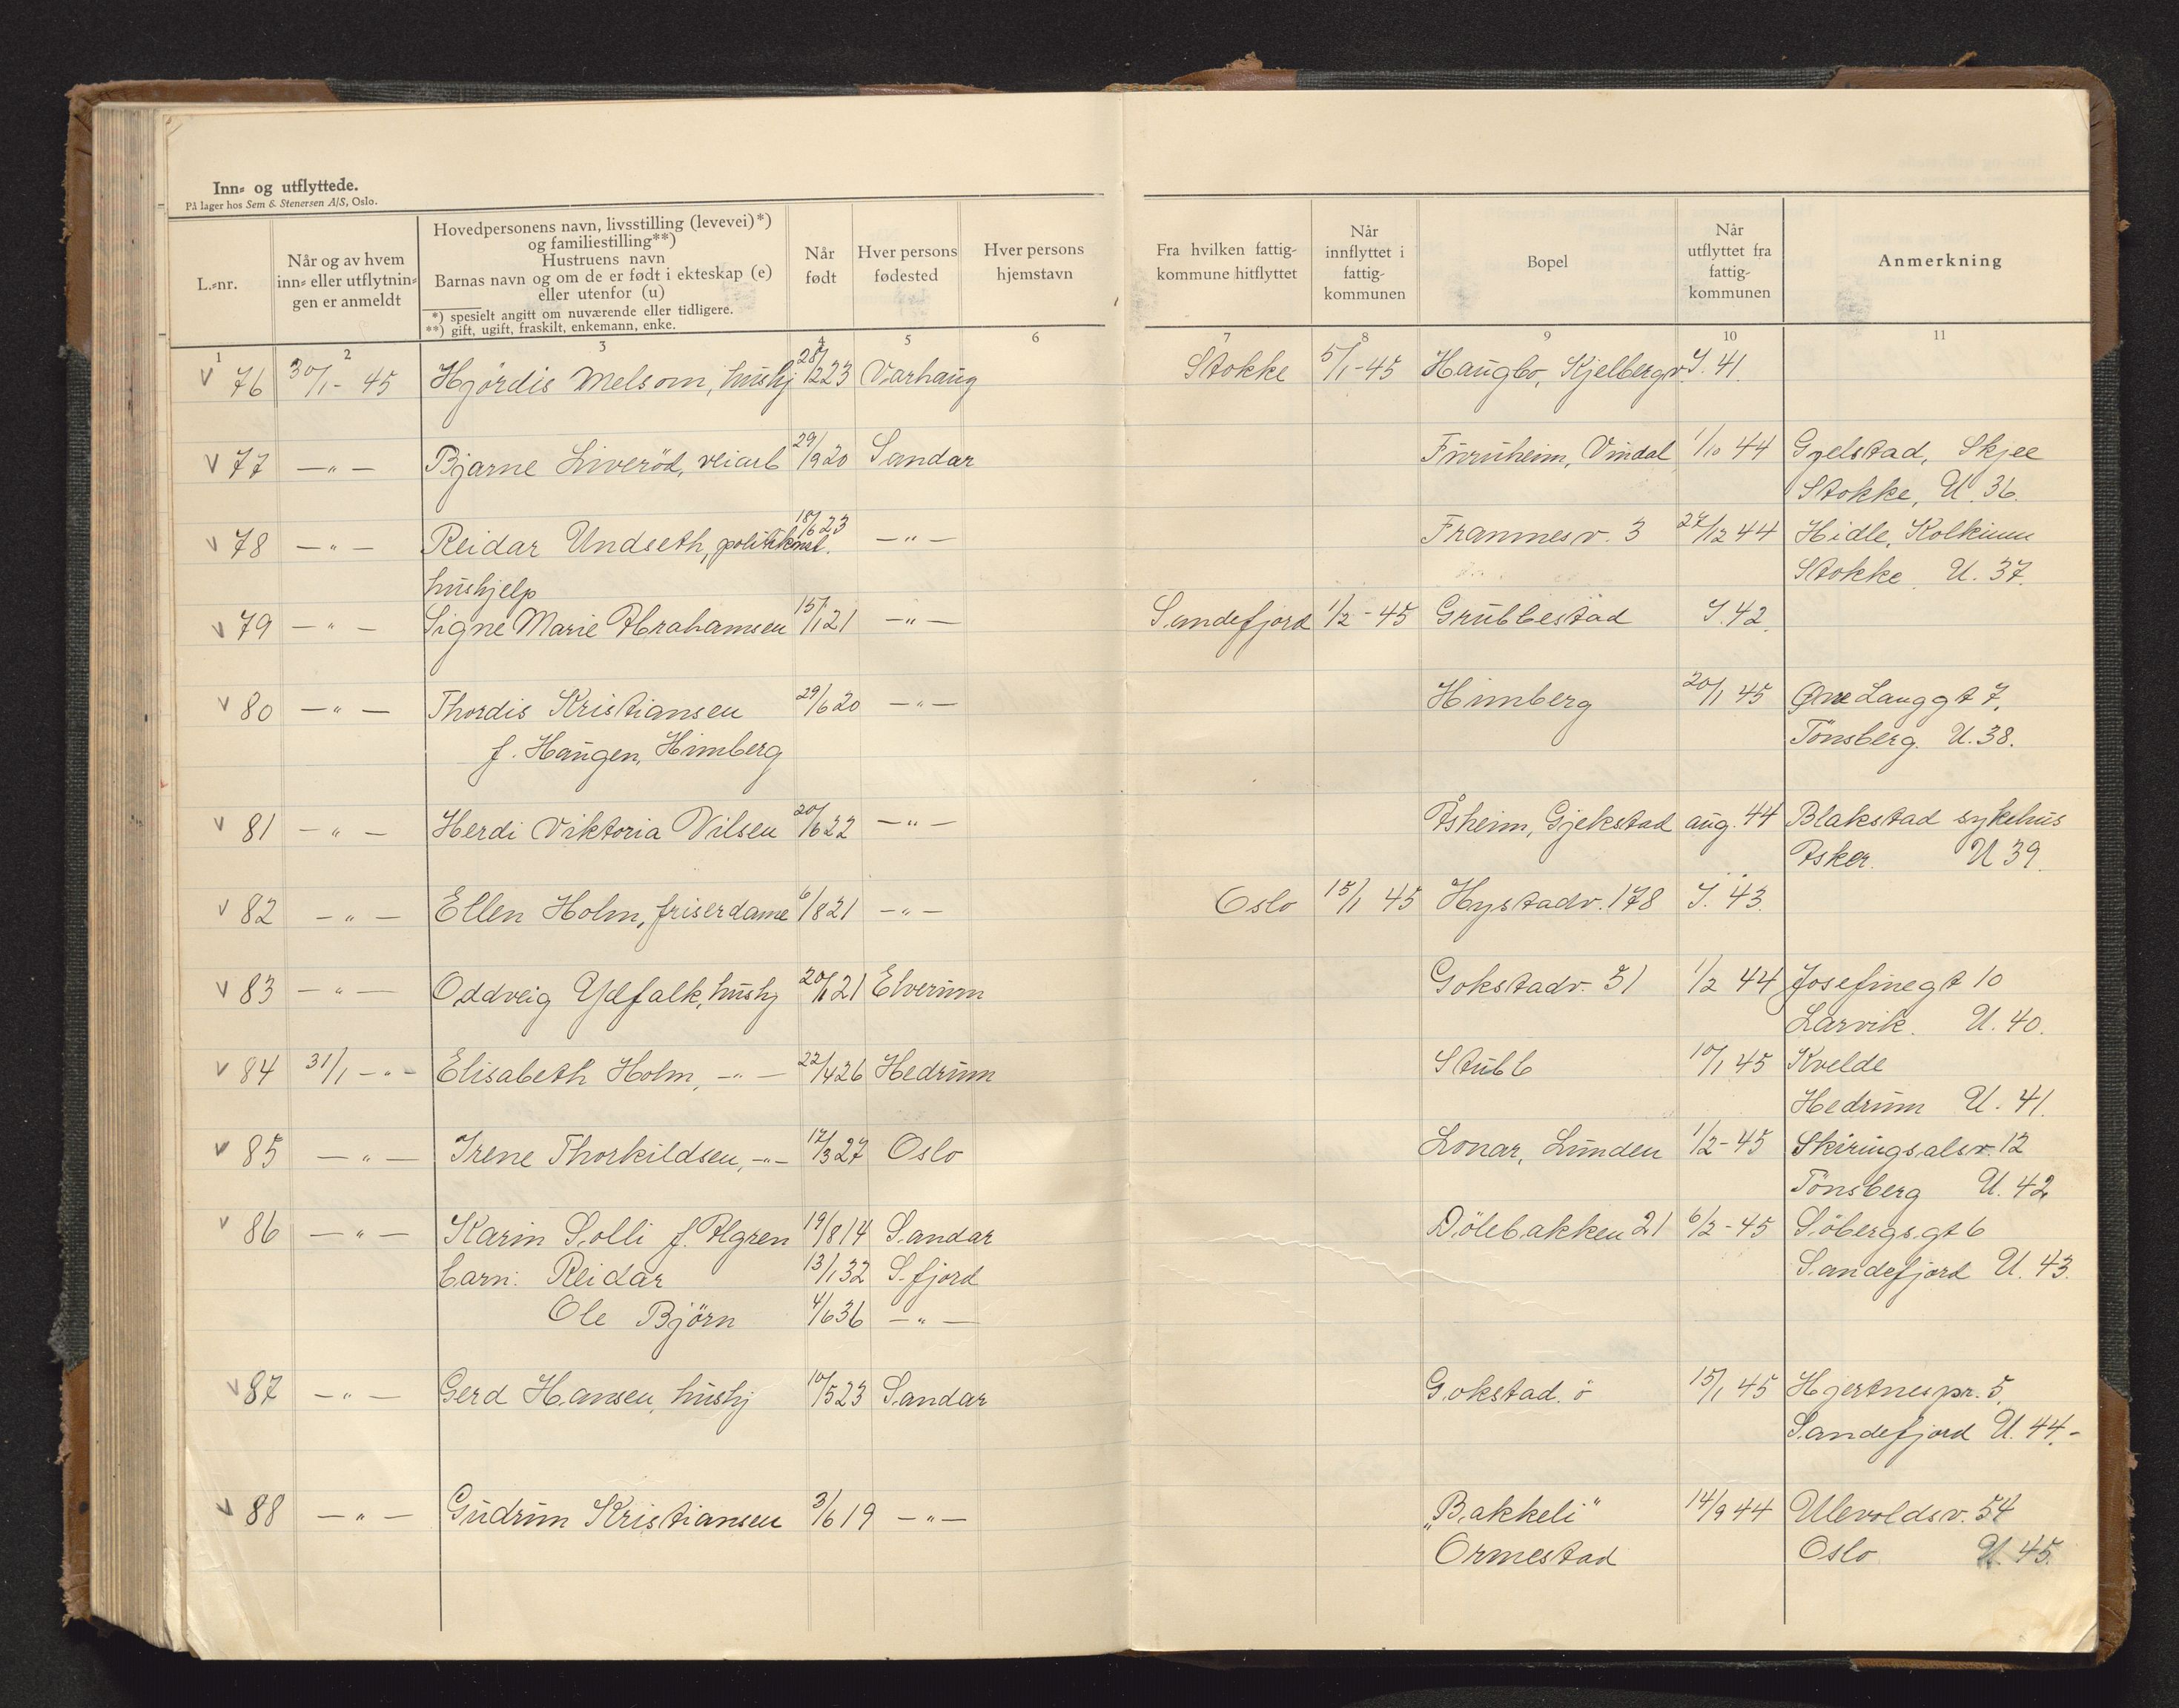 Inn- og utflyttede.
På lager hos Sem & Stenersen A/S, Oslo.
L.-nr.
Når og av hvem
inn- eller utflytnin-
gen er anmeldt
Hovedpersonens navn, livsstilling (levevei)*)
og familiestilling**)
Hustruens navn
Barnas navn og om de er født i ekteskap (e)
eller utenfor (u)
*) spesielt angitt om nuværende eller tidligere.
**) gift, ugift, fraskilt, enkemann, enke.
Når
født
Hver persons
fødested
Hver persons
hjemstavn
Fra hvilken fattig-
kommune hitflyttet
Når
innflyttet i
fattig-
kommunen
Bopel
Når
utflyttet fra
fattig-
kommunen
Anmerkning
1 2 3 4 5 6 7 8 9 10 11
v 76 30/1 - 45 Hjördis Melsom, hushj 28/12 23 Varhaug Stokke 5/1-45 Haugbo, Kjelbergv. I. 41.
v 77 — " — Bjarne Liveröd, veiarb 29/9 20 Sandar Furuheim, Vindal 1/10 44 Gjelstad, Skjee
Stokke, U. 36.
v 78 — " — Reidar Undseth, 18/6 23 — " — Framnesv. 3 27/12 44 Hidle,
Stokke U. 37.
hushjelp
v 79 — " — Signe Marie Abrahamsen 15/1 21 — " — Sandefjord 1/2 - 45 Grubbestad I. 42.
v 80 — " — Thordis Kristiansen 29/6 20 — " — Himberg 20/1 45 Øvre Langgt 7,
f. Haugen, Himberg Tönsberg. U. 38.
v 81 — " — Herdi Viktoria Nilsen 20/6 22 — " — Åsheim, Gjekstad aug. 44 Blakstad sykehus
Asker. U 39.
v 82 — " — Ellen Holm, friserdame 6/8 21 — " — Oslo 15/1 45 Hystadv. 178 I. 43.
v 83 — " — Oddveig Ydfalk, hushj 20/11 21 Elverum Gokstadv. 31 1/2 44 Josefinegt 10
Larvik. U. 40.
v 84 31/1 — " — Elisabeth Holm, — " — 22/4 26 Hedrum Stubb 10/1 45 Kvelde
Hedrum U. 41.
v 85 — " — Irene Thorkildsen, — " — 17/3 27 Oslo Lonar, Lunden 1/2 - 45 Skiringsalsv. 12
Tönsberg U. 42
v 86 — " — Karin Solli f. Agren 19/8 14 Sandar Dölebakken 21 6/2 - 45 Söbergsgt 6
barn: Reidar 13/1 32 S.fjord Sandefjord U. 43.
Ole Björn 4/6 36 — " —
v 87 — " — Gerd Hansen, hushj 10/5 23 Sandar Gokstad. ö 15/1 45 Hjertnespr. 5,
Sandefjord U. 44.-
v 88 — " — Gudrun Kristiansen 3/6 19 — " — "Bakkeli" 14/9 44 Ulevoldsv. 54
Ormestad Oslo U. 45.